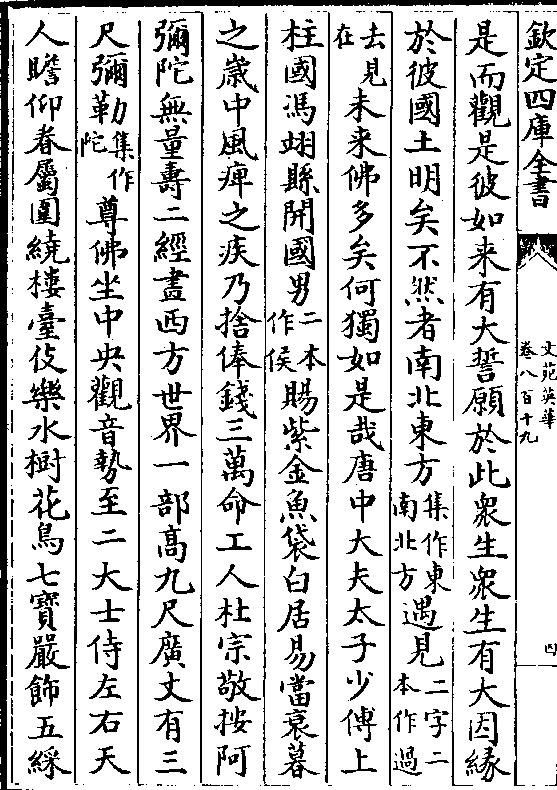 欽定四庫全書
文苑英華
卷八百十九
四
是而觀是彼如来有大誓願於此衆生衆生有大因緣
於彼國土明矣不然者南北東方集作東南北方遇見二字二本作過
去見在未来佛多矣何獨如是哉唐中大夫太子少傅上
柱國馮翊縣開國男二本作侯賜紫金魚袋白居易當衰暮
之嵗中風痺之疾乃捨俸錢三萬命工人杜宗敬按阿
彌陀無量壽二經畫西方世界一部髙九尺廣丈有三
尺彌勒集作陀尊佛坐中央觀音勢至二大士侍左右天
人瞻仰眷屬圍繞樓臺伎樂水樹花鳥七寶嚴飾五綵